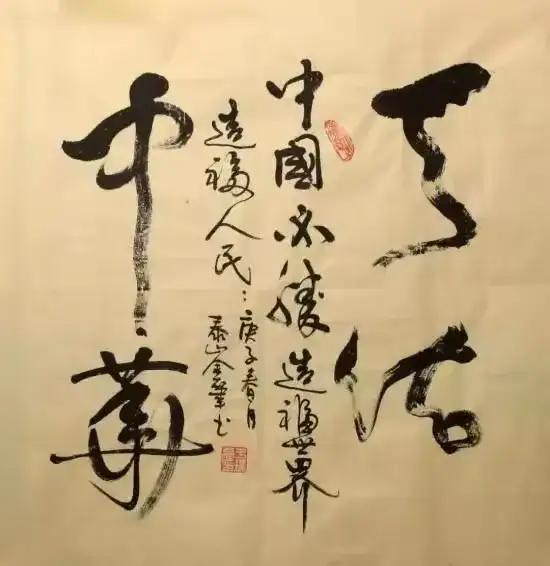 天佑
中國必勝造福世界
造福人民
庚子春月
泰山金華书
中華